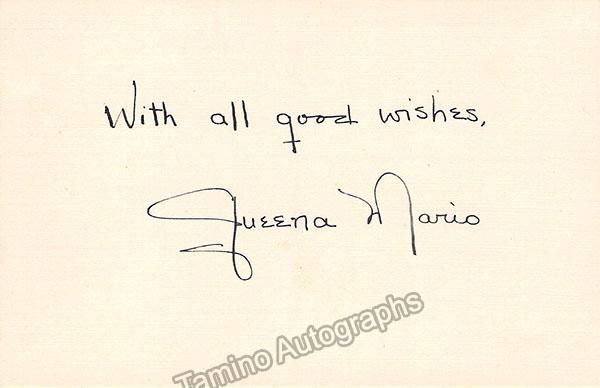 With all good wishes,
Queena Mario
Tamino Autographs